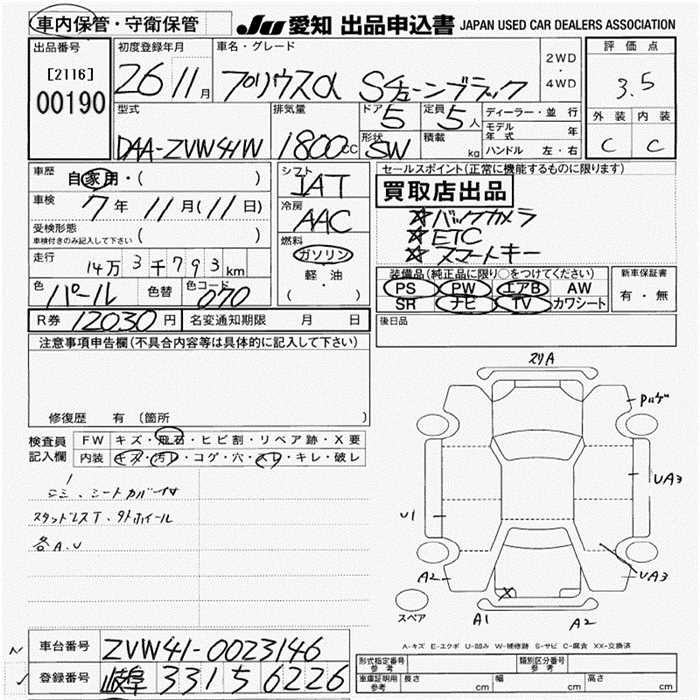 車内保管・守衛保管 JU 愛知 出品申込書 JAPAN USED CAR DEALERS ASSOCIATION
出品番号 初度登録年月 車名・グレード 2WD・4WD 評価点
[2116] 26 11月 プリウスα Sチューンブラック 3.5
00190
型式 排気量 ドア 定員 ディーラー・並行 外装 内装
DAA-ZVW41W 1800cc 5 5人 モデル年式 年
形状 SW 積載 kg ハンドル 左・右 C C
車歴 自家用・( ) シフト IAT セールスポイント(正常に機能するものに限ります)
車検 7年 11月(11日) 冷房 AAC 買取店出品
受検形態 ( ) ☆バックカメラ
車検付きのみ記入して下さい 燃料 ☆ETC
走行 14万3千793km ガソリン ☆スマートキー
軽・油
( ・ )
装備品(純正品に限り○をつけてください) 新車保証書
色 パール 色替 色コード 070 PS PW エアB AW 有・無
SR ナビ TV カワシート
R券 12030円 名変通知期限 月 日 後日品
注意事項申告欄(不具合内容等は具体的に記入して下さい)
修復歴 有 (箇所 )
検査員記入欄 FW キズ・飛石・ヒビ割・リペア跡・X要
内装 キズ・汚レ・コゲ・穴・スレ・キレ・破レ
スタッドレスT、夕トホイール
各A.U
スリA
UA3
U1
A2 UA3
スペア X
A1 A2
A-キズ E-エクボ U-凹み W-補修跡 S-サビ C-腐食 XX-交換済
車台番号 ZVW41-0023146
登録番号 岐阜 331 5 6226
形式指定番号 参考 類別区分番号 参考
車庫証明用 参考 長さ cm 幅 cm 高さ cm